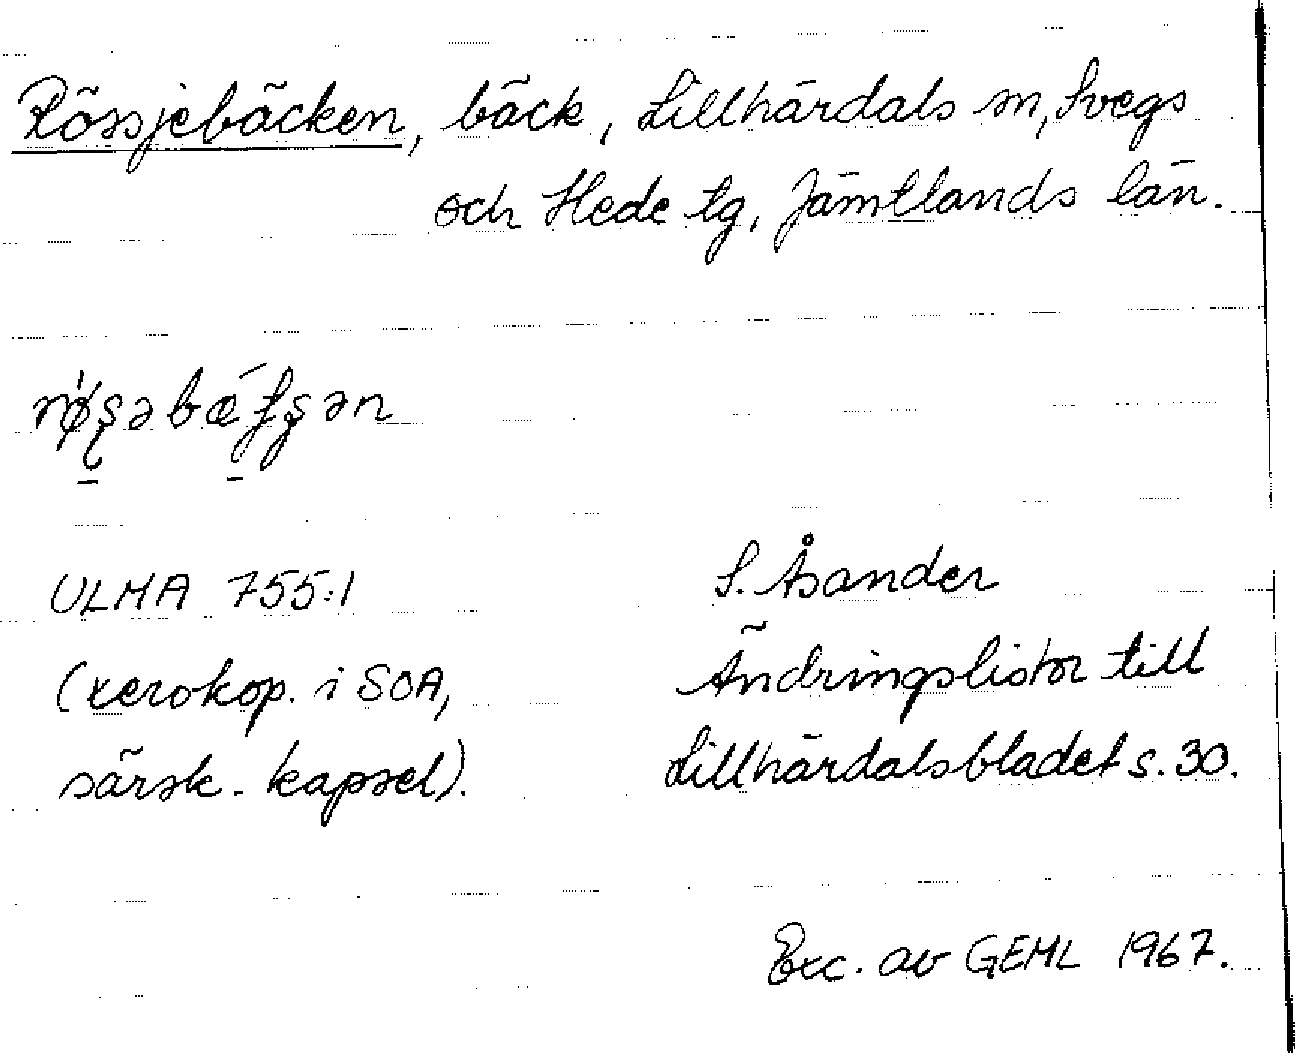 Rössjebäcken, bäck, Lillhärdals sn, Svegs
och Hede tg, Jämtlands län.
ULMA 755:1
S. Åsander
(xerokop. i SOA,
Ändringslistor till
särsk. kapsel).
Lillhärdalsbladet s. 30.
Exc. av GEML 1967.